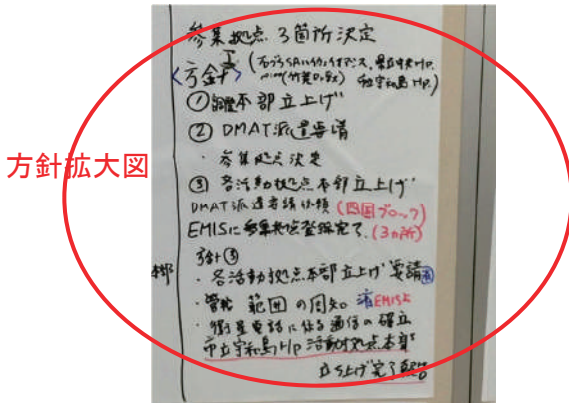 参集拠点 3箇所決定
<方針>
県立中央HP.
市立宇和島HP.)
①調整本部立上げ
② DMAT派遣要請
・参集拠点決定
③ 各活動拠点本部立上げ
DMAT派遣要請依頼 (四国ブロック)
EMISに参集拠点登録完了. (3ヵ所)
方針③
・各活動拠点本部立上げ要請 済
・管轄範囲の周知 済EMIS上
・衛星電話に係る通信の確立
市立宇和島HP 活動拠点本部
立ち上げ完了報告
方針拡大図
部